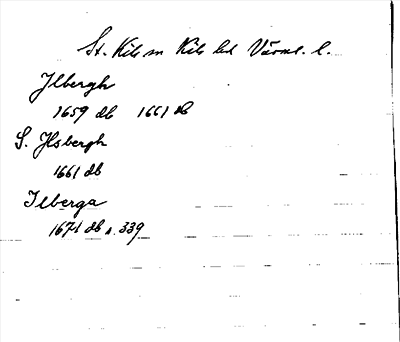 St. Kils sn Kils hd Värml. l.
Jlbergh
1659 db 1661 db
S. Jlsbergh
1661 db
Ilberga
1671 db s. 339